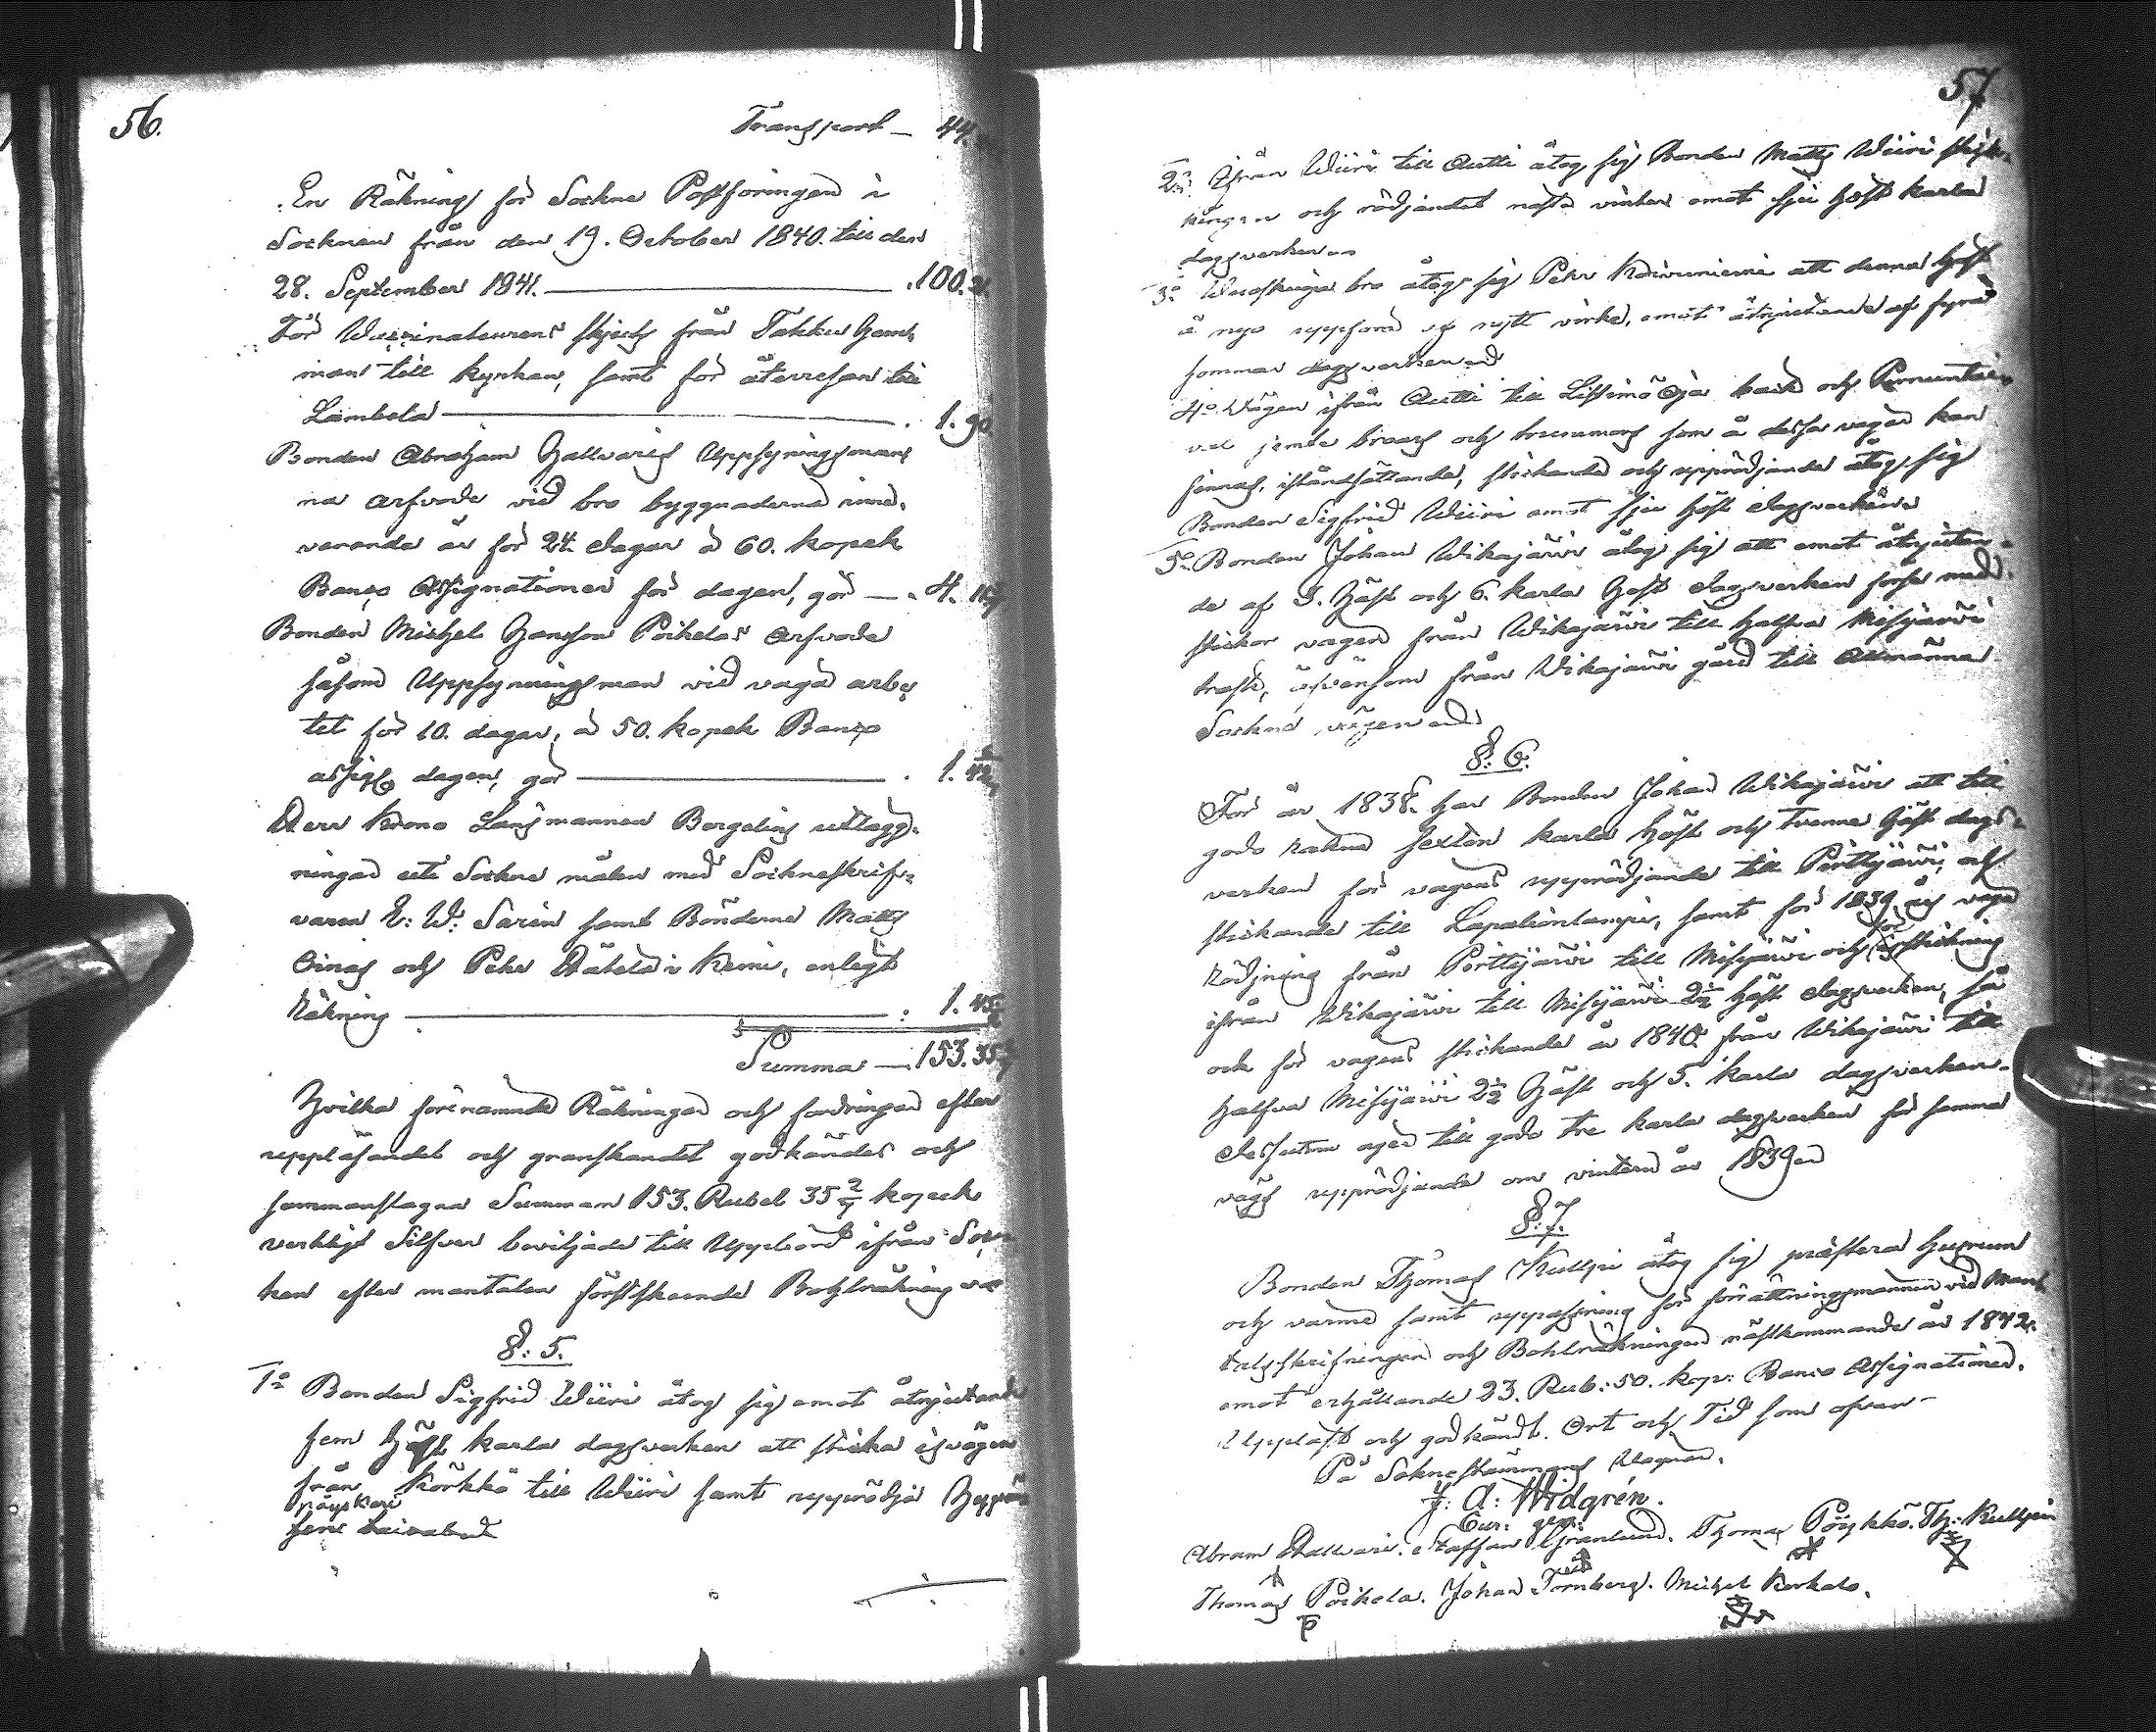 56.
Transport — 44.
En Räkning för Sockne Postföringen i
Socknen från den 19. October 1840. till den
28. September 1841. — 100. 21
För Vaccinateurens skjuts från Takku Hem-
man till kyrkan, samt för återresan till
Lambela — 1. 90
Bonden Abraham Hallvaris Uppsyningsman-
na arfvode vid bro byggnaderna inne-
varande år för 24 dagar à 60. kopek
Banco Assignationer för dagen, gör — 4.
Bonden Michel Hansson Poikelas Arfvode
såsom Uppsyningsman vid väga arbe-
tet för 10. dagar, à 50. kopek Banco
assig. dagen, gör — 1. 42
Herr Krono Länsmannen Borgelins utlägg-
ningar uti Sockne målen med Socknskrif-
varen E: W: Sarin samt Bönderne Matts
Oinas och Pehr Hätälä i Kemi, enligt
Räkning — 1. 45
Summa — 153. 35 2/7
Hvilka förenämnde Räkningar och fordringar efter
uppläsandet och granskandet godkändes och
sammanslagna Summan 153. Rubel 35 2/7 kopek
verkligt Silfver beviljade till Uppbörd ifrån Soc-
ken efter mantalen förstskeende Bohlräkning
§: 5.
1o Bonden Sigfrid Wiiri åtog sig emot åtnjutande
fem Häst karla dagsverken att sticka isvägen
från Körkkö till Wiiri samt upprödja
57
2o Ifrån Wiiri till Autti åtog sig Bonden Matts Wiiri stick-
ningen och rödjandet nästa vinter emot sju häst karla
dagsverken
3o bro åtog sig Pehr Koivuniemi att denna höst
å nyo uppföra af nytt virke, emot åtnjutande af fyra
sommar dagsverken
4o Vägen ifrån Autti till Lissimö Oja både och
väl jemte broars och trummors som å dessa vägar kan
finnas, iståndsättande, stickande och upprödjande åtog sig
Bonden Sigfrid Wiiri emot sju häst dagsverken
5o Bonden Johan Wikajärvi åtog sig att emot åtnjutan-
de af 3. Häst och 6. karla Häst dagsverken förse med
stickor vägen från Wikajärvi till halfva Misijärvi
träsk, äfvensom från Wikajärvi gård till Allmänna
Sockne vägen
§: 6.
För år 1838. har Bonden Johan Wikajärvi att till
godo räkna sexton karla häst och tvenne Häst dags-
verken för vägens upprödjande till Pörttijärvi, och
stickande till Lapalionlampi, samt för 1839 års väga
Rödjning från Pörttijärvi till Misijärvi och för isstickning
ifrån Wikajärvi till Misijärvi 2 1/2 häst dagsverken, så
ock för vägens stickande år 1840 från Wikajärvi till
halfva Misijärvi 2 1/2 Häst och 5. karla dagsverken.
dessutom äger till godo tre karla dagsverken för samma
vägs upprödjande om vintern år 1839
§: 7.
Bonden Thomas Kulppi åtog sig prästera husrum
och värme samt uppassning för förrättningsmannen vid Man-
talsskrifningen och Bohlräkningen nästkommande år 1842.
emot erhållande 23. Rub: 50. kop: Banco Assignationer.
Uppläst och godkändt. Ort och Tid som ofvan—
På Sockne stämmans vägnar.
J: A: Widgrén.
Abram Hallvari. Staffan Granlund. Thomas Pöykkö. Th: Kulppi
Thomas Poikela. Johan Törnberg. Michel Korkalo.